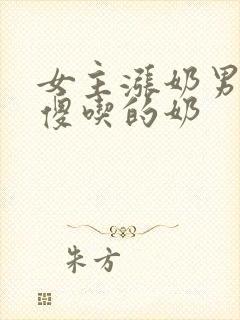 女主涨奶男
傻喫的奶
朱方